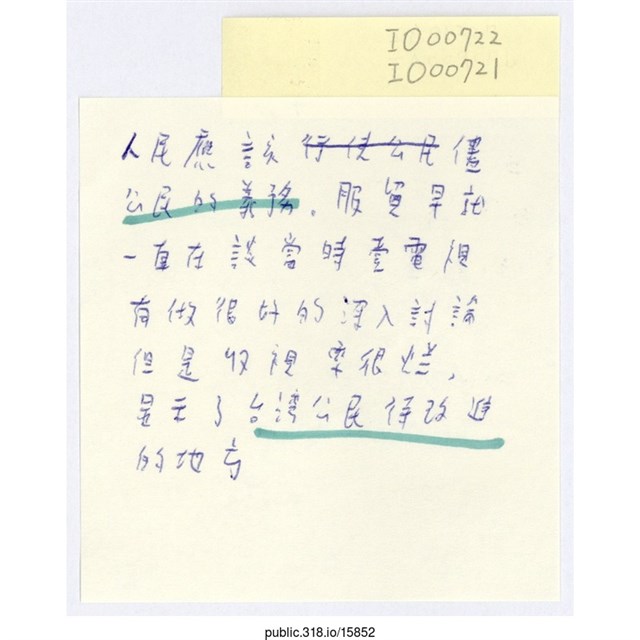 IO00722
IO00721
人民應該行使公民儘
公民的義務。服貿早就
一直在談當時壹電視
有做很好的深入討論
但是收視率很爛,
顯示了台灣公民待改進
的地方
public.318.io/15852